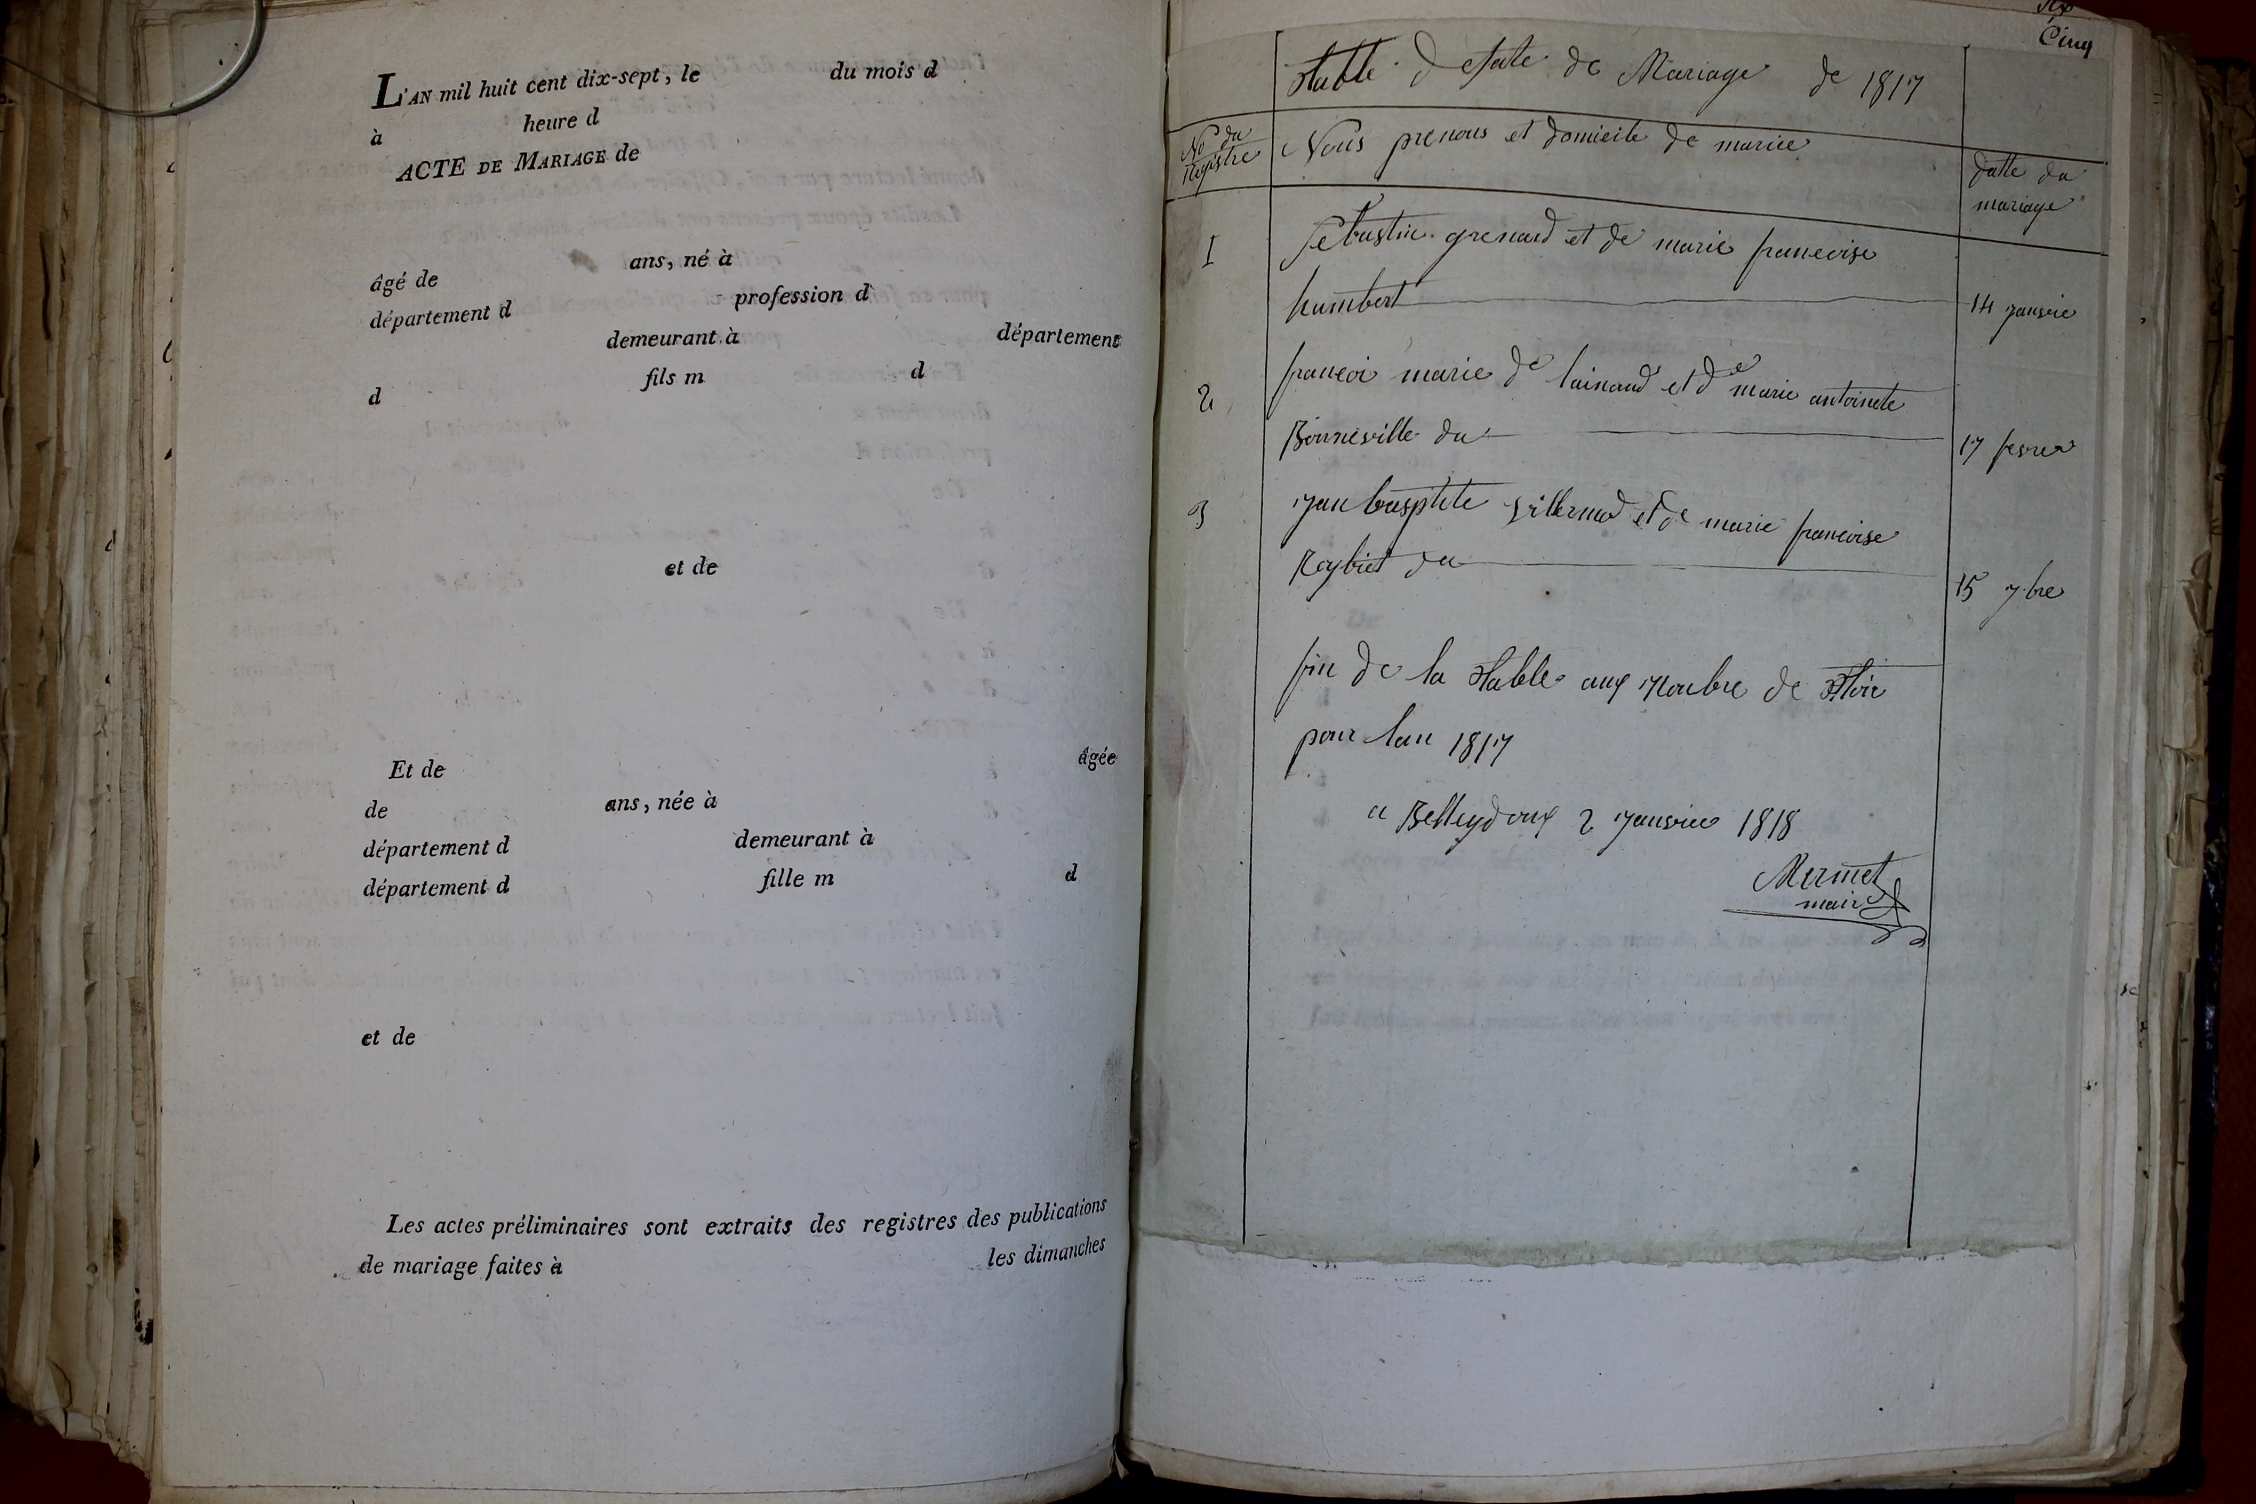 L'AN mil huit cent dix-sept, le du mois d
à heure d
ACTE DE MARIAGE de
âgé de ans, né à
département d profession d
demeurant à département
d fils m d
et de
Et de âgée
de ans, née à
département d demeurant à
département d fille m d
et de
Les actes préliminaires sont extraits des registres des publications
de mariage faites à les dimanches
Cinq
table de de Mariage de 1817
No du
Registre
Nous prenous et domicile de mariee
datte du
mariage
1 Sebastin grenard et de marie francoise
humbert 14 janvie
2 francoi marie de lainaud et de marie antoinete
Bonneville du 17 fevrer
3 jan basptite villermod et de marie francoise
Reybiet du 15 7bre
fin de la table aux Nonbre de
pour lan 1817
a Belleydoux 2 janvier 1818
Mermet
maire